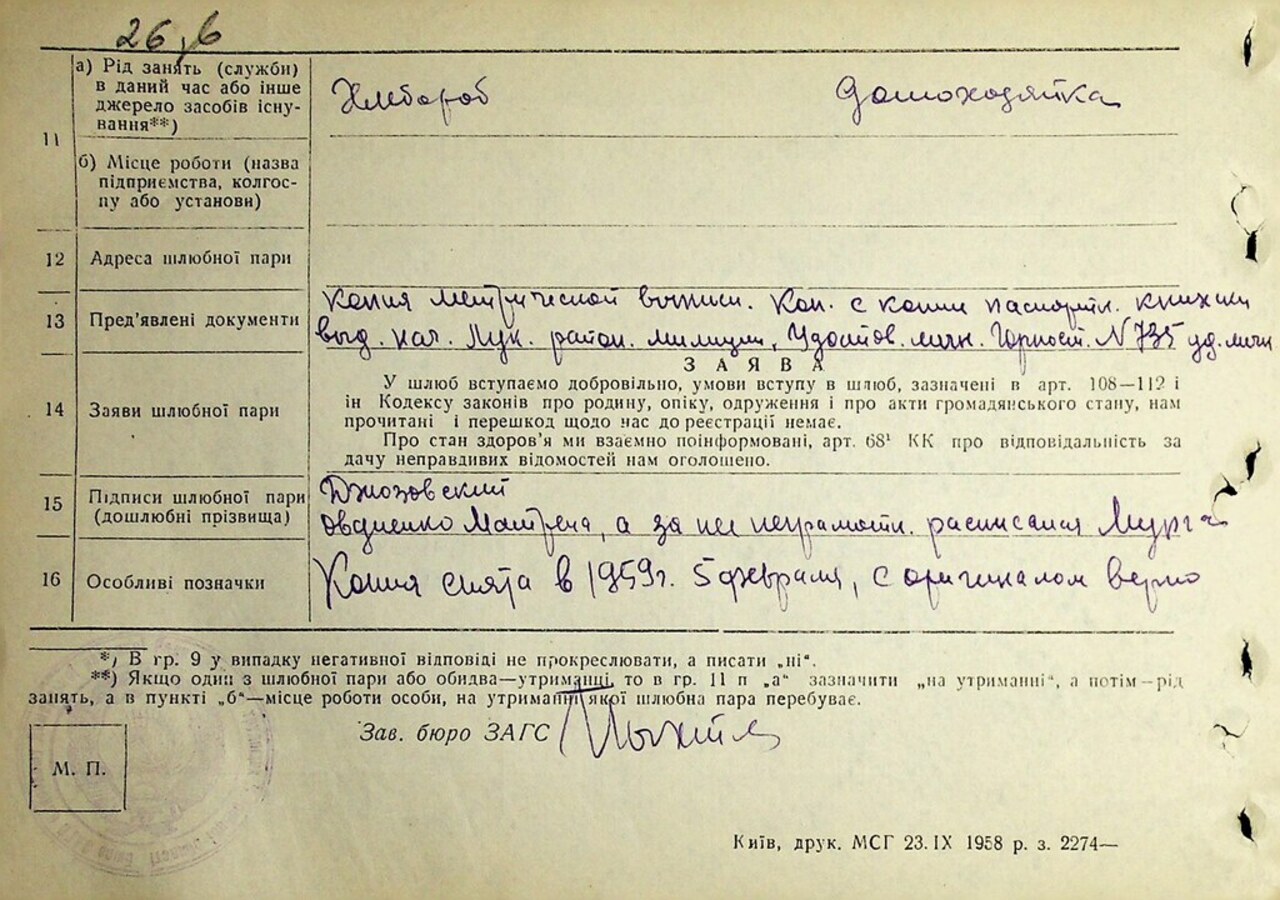 26,б
11
а) Рід занять (служби)
в даний час або інше
джерело засобів існу-
вання**)
Хлебороб
Домохозяйка
б) Місце роботи (назва
підприємства, колгос-
пу або установи)
12
Адреса шлюбної пари
13
Пред’явлені документи
Копия метрической выписи. Коп. с копии паспортн. книжки
выд. нач. Лук. район. милиции, Удостов. личн. N 735 уд. личн
14
Заяви шлюбної пари
ЗАЯВА
У шлюб вступаємо добровільно, умови вступу в шлюб, зазначені в арт. 108—112 і
ін Кодексу законів про родину, опіку, одруження і про акти громадянського стану, нам
прочитані і перешкод щодо нас до реєстрації немає.
Про стан здоров’я ми взаємно поінформовані, арт. 68¹ КК про відповідальність за
дачу неправдивих відомостей нам оголошено.
15
Підписи шлюбної пари
(дошлюбні прізвища)
Джозовский
Овдиенко Матрена, а за нее неграмотн. расписался Мурга
16
Особливі позначки
Копия снята в 1959 г. 5 февраля, с оригиналом верно
*) В гр. 9 у випадку негативної відповіді не прокреслювати, а писати „ні“.
**) Якщо один з шлюбної пари або обидва—утриманці, то в гр. 11 п „а“ зазначити „на утриманні“, а потім—рід
занять, а в пункті „б“—місце роботи особи, на утриманні якої шлюбна пара перебуває.
Зав. бюро ЗАГС
М. П.
Київ, друк. МСГ 23.IX 1958 р. з. 2274—